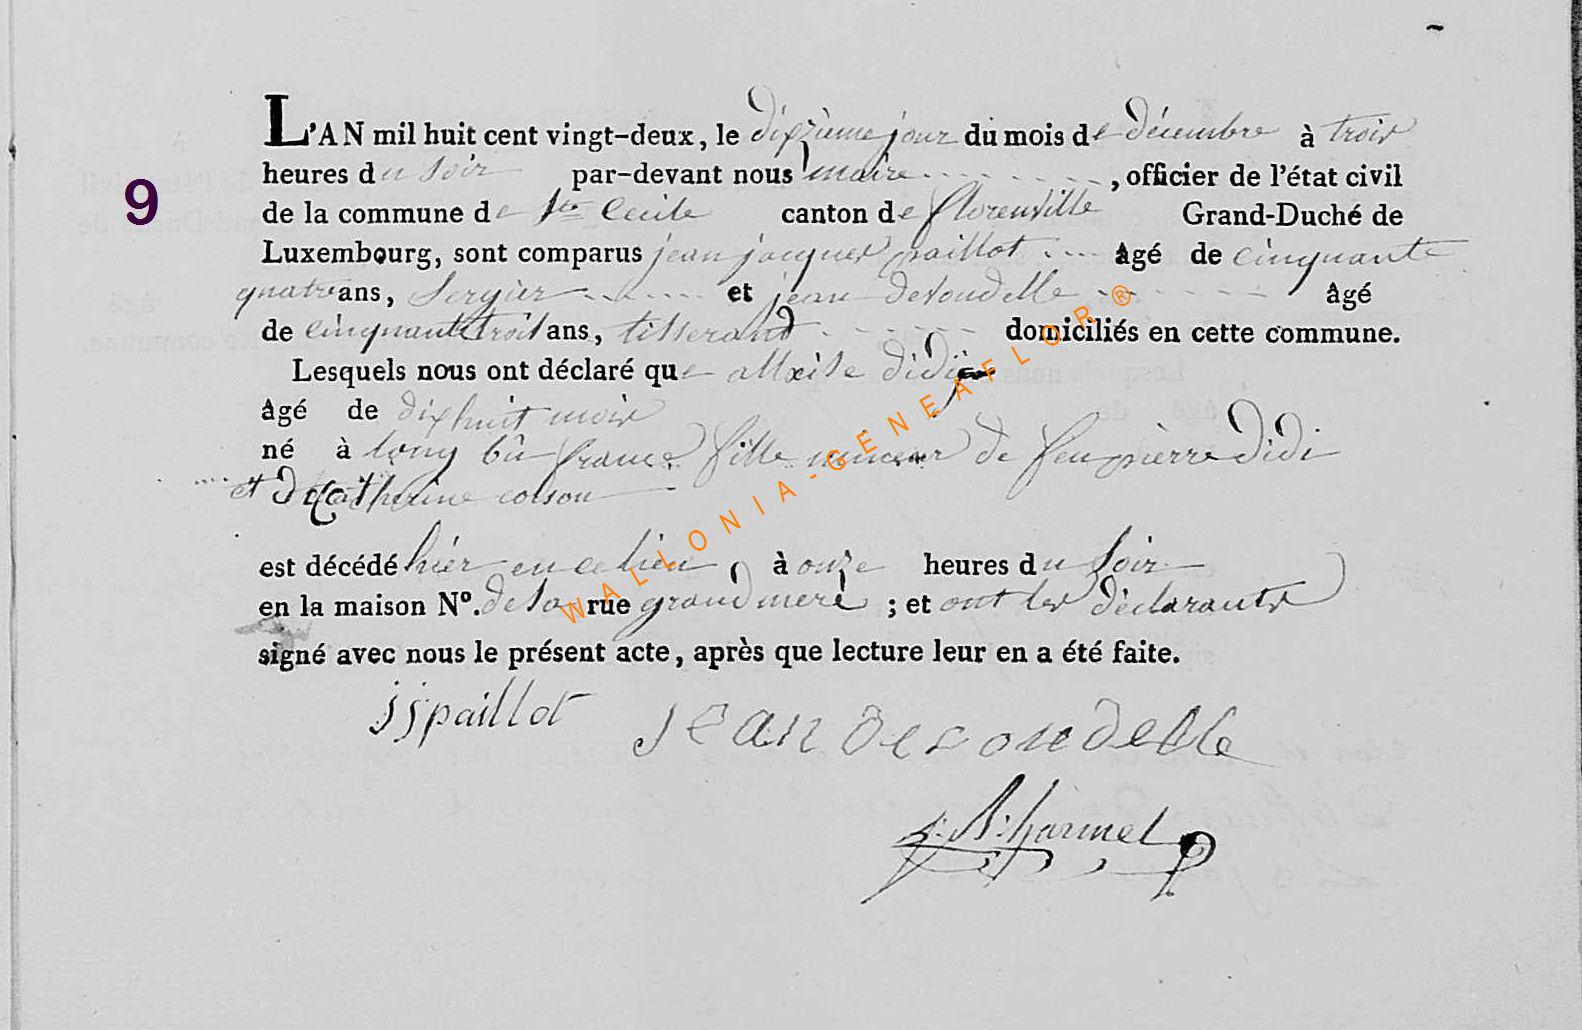 L'AN mil huit cent vingt-deux, le dixzième jour du mois de décembre à trois
heures du soir par-devant nous maire, officier de l'état civil
9
de la commune de Ste Cecile canton de florenville Grand-Duché de
Luxembourg, sont comparus jean jacques paillot âgé de cinquante
quatre ans, et jean desoudelle âgé
de cinquante trois ans, tisserand domiciliés en cette commune.
Lesquels nous ont déclaré que didi
âgé de dix huit mois
né à france fille mineur de feu pierre didi
et de Catherine
est décédé hier en ce lieu à onze heures du soir
en la maison N°. de sa rue grand mere ; et ont les déclarants
signé avec nous le présent acte, après que lecture leur en a été faite.
jjpaillot jean desoudelle
harmel
WALLONIA-GENEAFLOR®